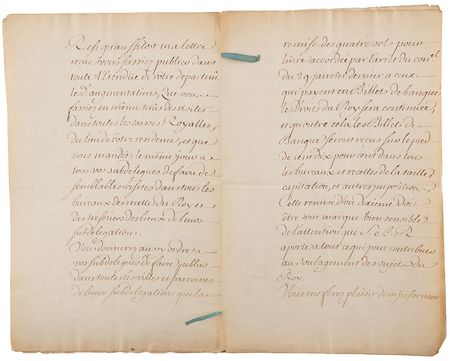 Reste qu'aussitost ma lettre
reçue vous fassiez publier dans
toute l'étendue de votre departem.t
les d'augmentations, Que vous
fassiez en même tems des visites
dans toutes les caisses Royalles,
du lieu de votre residence, et que
vous mandiez le même jour a
tous vos subdelegués de faire de
semblables visites dans tous les
bureaux des recettes du Roy et
des tresoriers des lieux de leurs
subdelegations.
Vous donnerez au surplus ordre a
vos subdelegués de faire publier
dans toutes les villes et parroisses
de leurs subdelegations que la
remise des quatre sols pour
livre accordée par l'arrêt du con.el
du 29 janvier dernier a ceux
qui payent en Billets de banque
les droits du Roy sera continuée,
et qu'outre cela les Billets de
Banque seront reçus sur le pied
de cent dix pour cent dans tous
les bureaux et recettes de la taille,
capitation, et autres impositions.
Cette remise d'un dixieme doit
être une marque bien sensible
de l'attention que S. A. R.
aporte a tout ce qui peut contribuer
au soulagement des sujets du
Roy.
Vous me ferez plaisir de m'informer